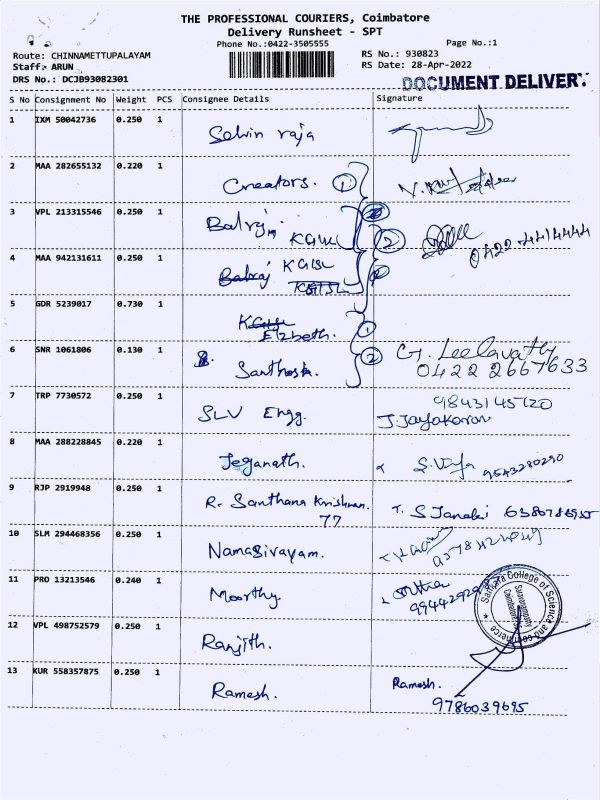 THE PROFESSIONAL COURIERS, Coimbatore
Delivery Runsheet - SPT
Phone No.:0422-3505555
Page No.:1
Route: CHINNAMETTUPALAYAM
RS No.: 930823
Staff: ARUN
RS Date: 28-Apr-2022
DRS No.: DCJB93082301
DOCUMENT DELIVERY
S No Consignment No Weight PCS Consignee Details Signature
1 IXM 50042736 0.250 1 Selvin raja
2 MAA 282655132 0.220 1 Creators. 1
3 VPL 213315546 0.250 1 Balraj KGISL 2 0422-4414444
4 MAA 942131611 0.250 1 Balraj KGISL KGISL
5 GDR 5239017 0.730 1 KGISL
Elzbeth. 1
6 SNR 1061806 0.130 1 Santhosh. 2 G. Leelavathy
0422 2667633
7 TRP 7730572 0.250 1 SLV Engg. 9843145120
J. Jayakaran
8 MAA 288228845 0.220 1 Jeganath. 9543280290
9 RJP 2919948 0.250 1 R. Santhana Krishnan. T. S Janaki
77
10 SLM 294468356 0.250 1 Namasivayam.
11 PRO 13213546 0.240 1 Moorthy
Sankara College of Science and commerce
Saravanampatty
12 VPL 498752579 0.250 1 Ranjith.
13 KUR 558357875 0.250 1 Ramesh. Ramesh.
9786039695